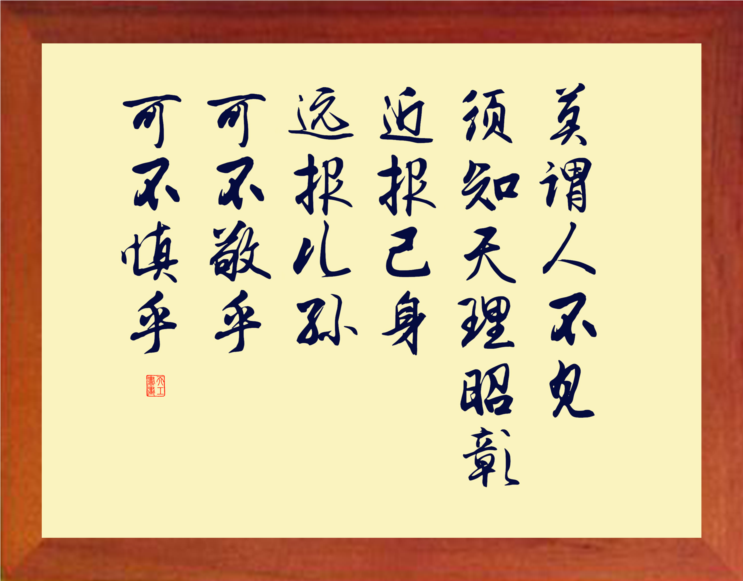 莫谓人不见
须知天理昭彰
近报己身
远报儿孙
可不敬乎
可不慎乎